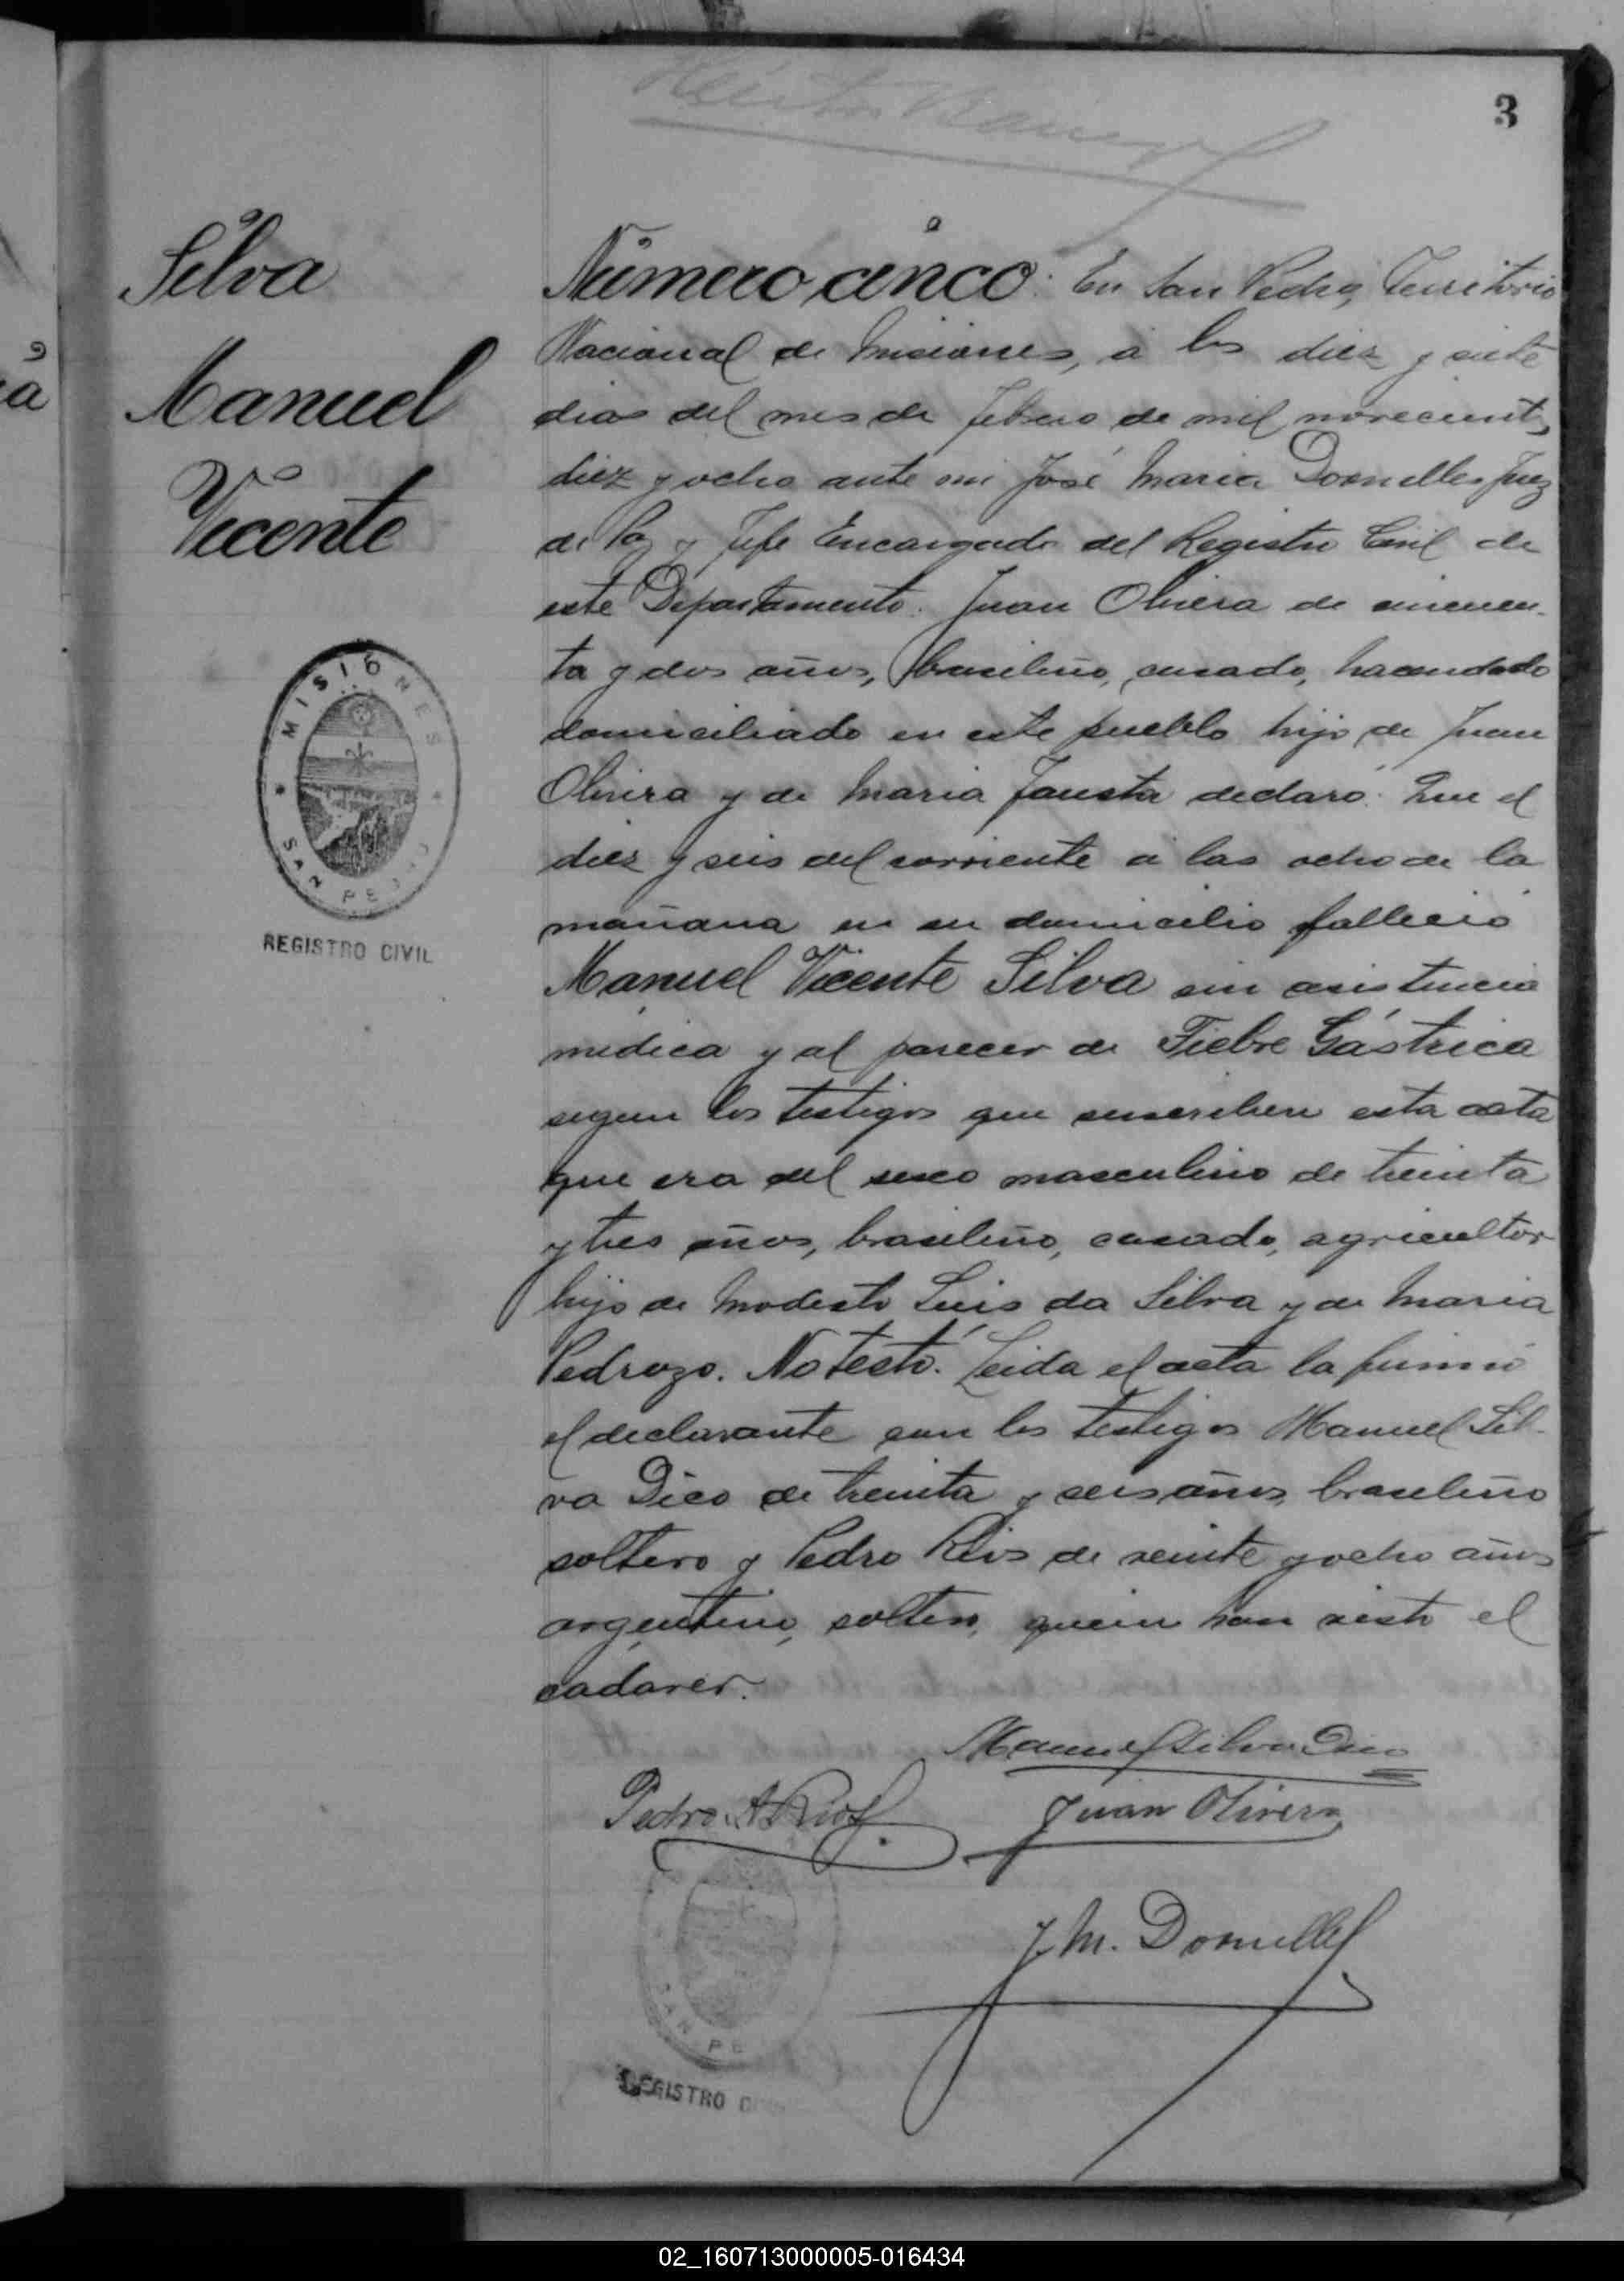 3
Silva
Manuel
Vicente
MISIONES
SAN PEDRO
REGISTRO CIVIL
Número cinco: En San Pedro, Territorio
Nacional de Misiones, á los diez y siete
dias del mes de febrero de mil novecientos
diez y ocho ante mi José Maria Dornelles Juez
de Paz y Jefe Encargado del Registro Civil de
este Departamento. Juan Olivera de cincuen-
ta y dos años, brasileño, casado, hacendado
domiciliado en este pueblo hijo de Juan
Olivera y de Maria Fausta declaró: Que el
diez y seis del corriente á las ocho de la
mañana en su domicilio falleció
Manuel Vicente Silva sin asistencia
medica y al parecer de Fiebre Gástrica
segun los testigos que suscriben esta acta
que era del sexo masculino de treinta
y tres años, brasileño, casado, agricultor
hijo de Modesto Luis da Silva y de Maria
Pedrozo. No testó. Leida el acta la firmó
el declarante con los testigos Manuel Sil-
va Dico de treinta y seis años, brasileño
soltero y Pedro Rios de veinte y ocho años
argentino, soltero, quien han visto el
cadaver.
Manuel Silva Dico
Pedro A Rios
Juan Olivera
J M. Dornelles
SAN PE
REGISTRO C
02_160713000005-016434